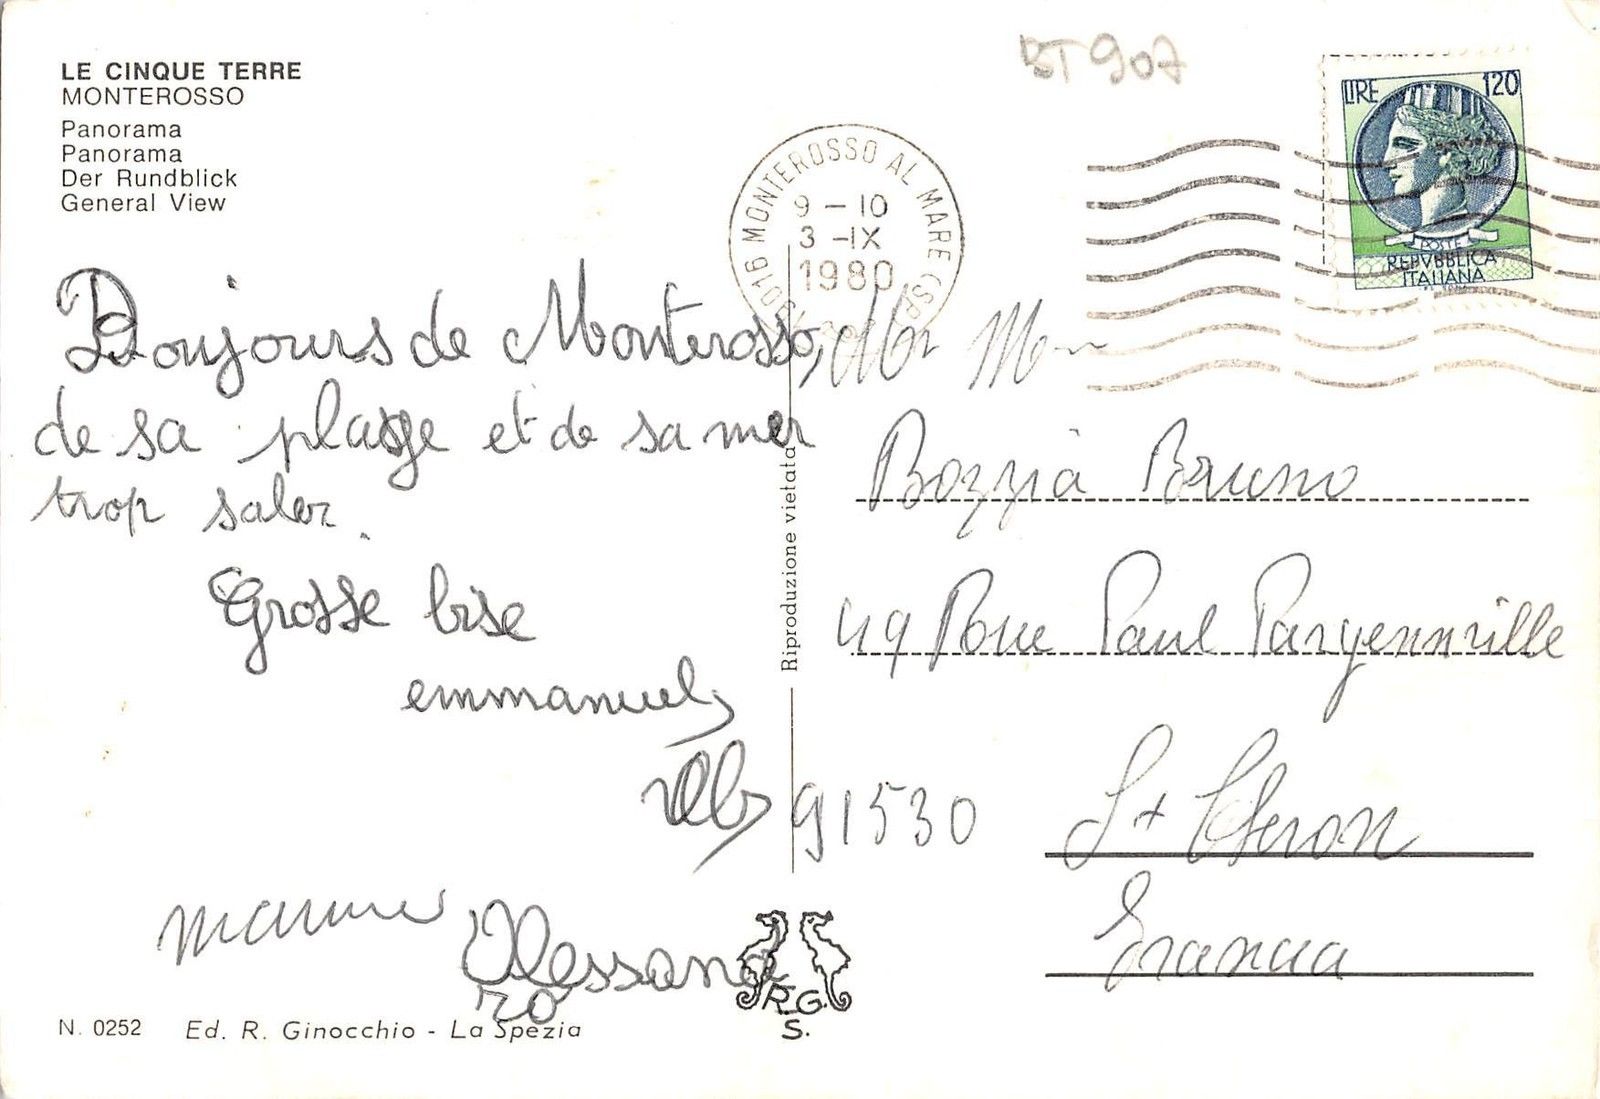 LE CINQUE TERRE
MONTEROSSO
Panorama
Panorama
Der Rundblick
General View
BT 907
LIRE 120
POSTE
REPVBBLICA
ITALIANA
9 - 10
3 - IX
1980
MONTEROSSO AL MARE (SP)
Bonjours de Monterosso,
de sa plage et de sa mer
trop saler.
Grosse bise
emmanuel
Alessand
ro
Riproduzione vietata
Mr Mm
Bozzia Bruno
49 Rue Paul Pargennville
91530 St Cheron
Francia
R.G.
S.
N. 0252 Ed. R. Ginocchio - La Spezia